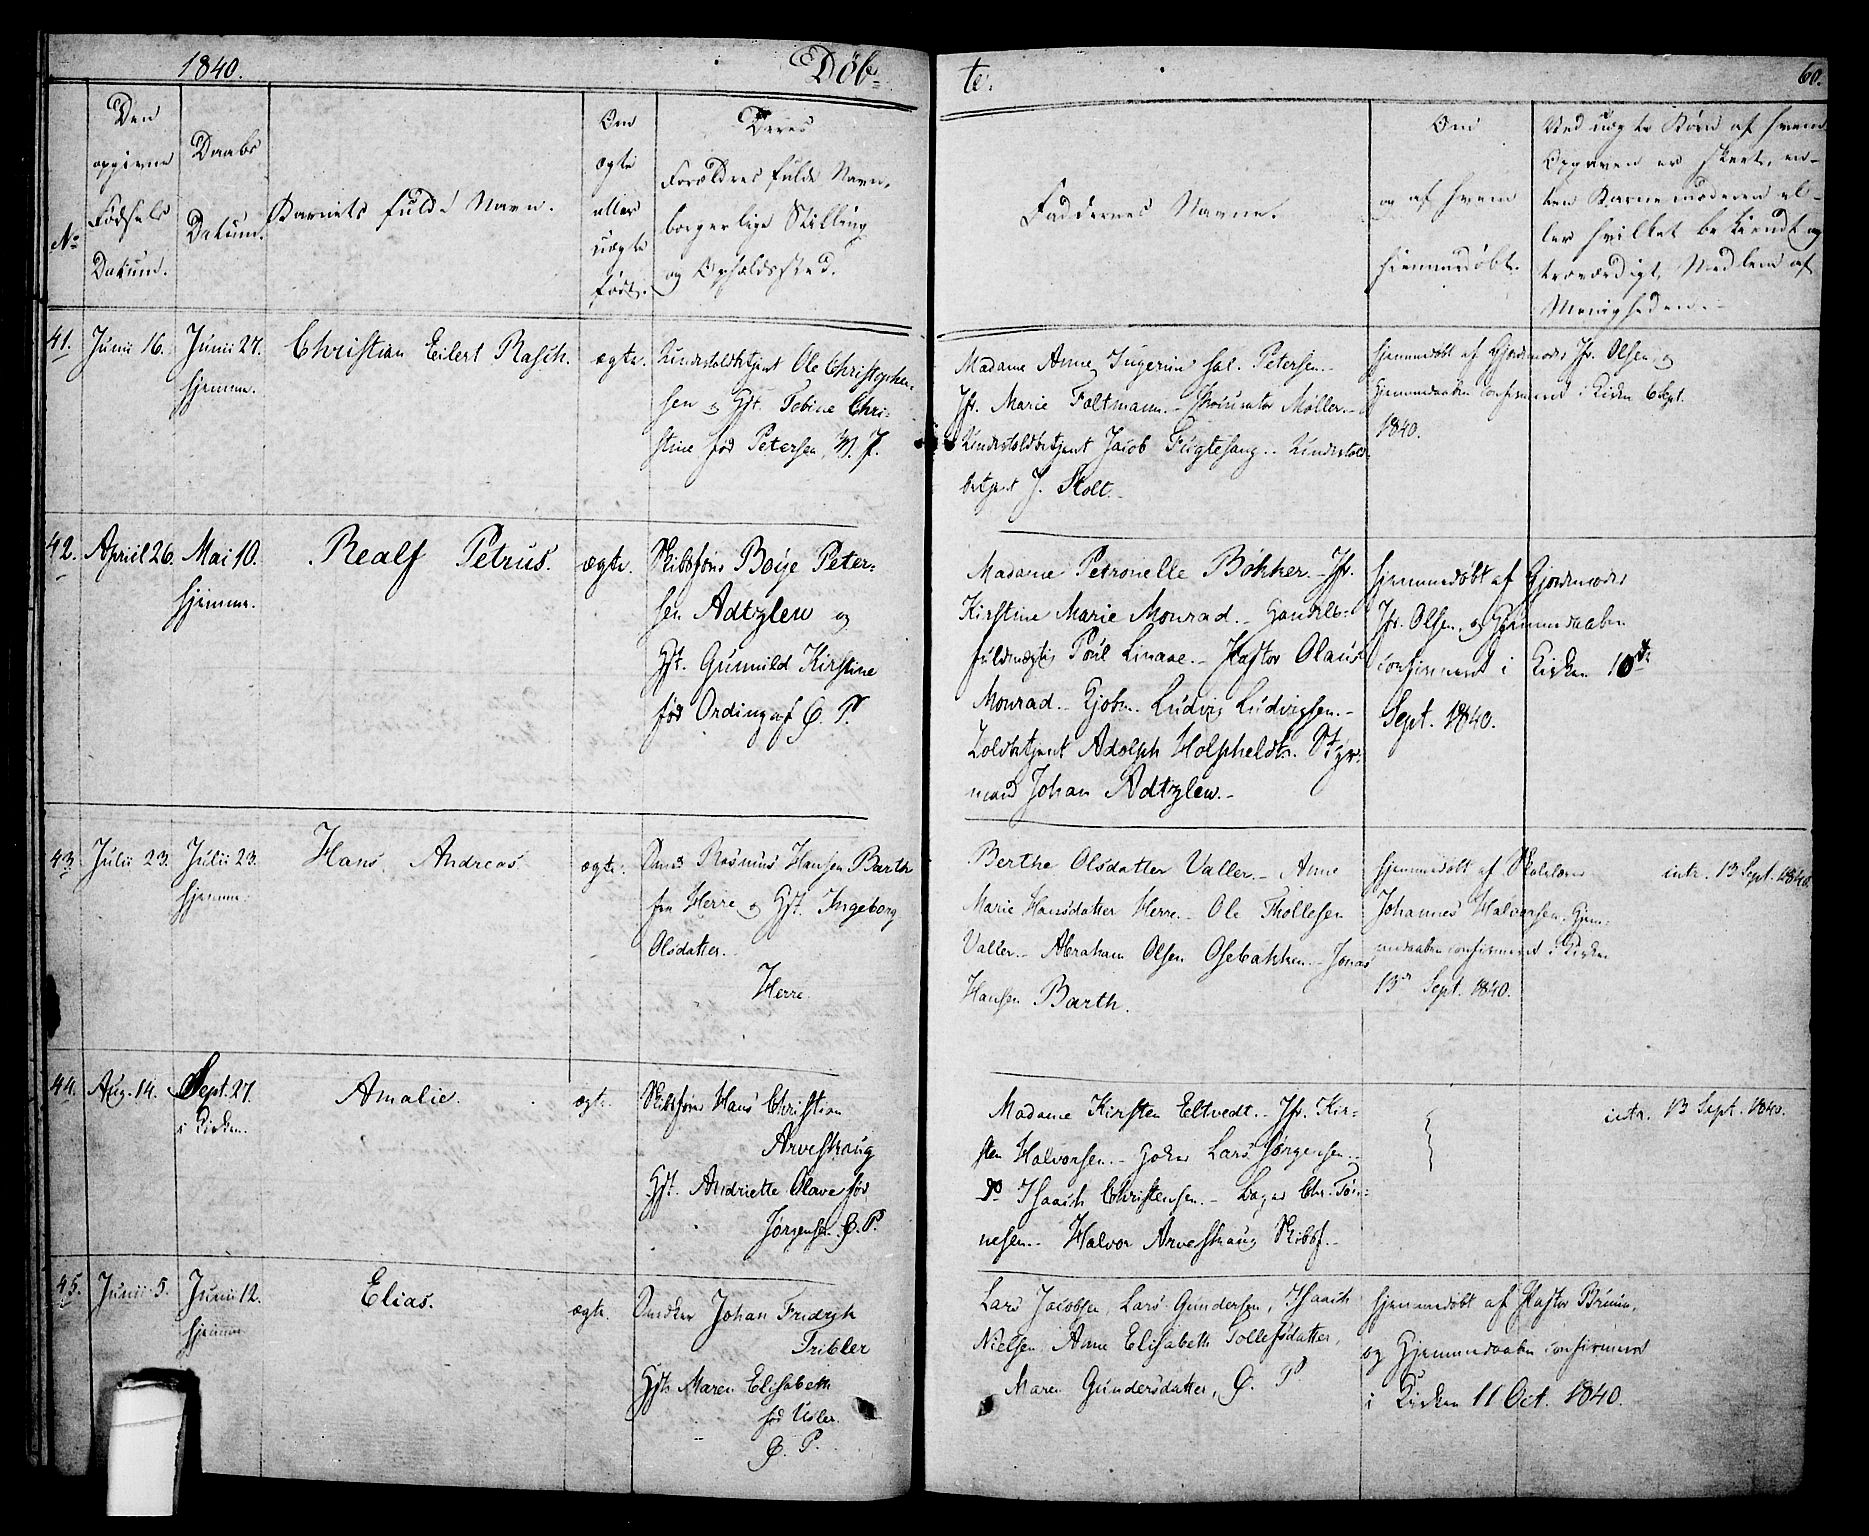 1840.
Døb=
te.
60.
No
Den
opgivne
Fødsels
Datum.
Daabs
Datum.
Barnets fulde Navn.
Om
ægte
eller
uægte
født.
Deres
Forældres fulde Navn,
borgerlige Stilling
og Opholdssted.
Faddernes Navne.
Om
og af hvem
hjemmedøbt.
Ved uægte Børn af hvem
Opgaven er skeet, en-
ten Barnemoderen el-
ler hvilket bekiendt og
troværdigt Medlem af
Menigheden.
41.
Junii 16.
Junii 27.
hjemme.
Christian Eilert Rasch.
ægte.
Undertoldbetjent Ole Christophe
sen og Hst. Tobine Chri-
stine fød Petersen,
Madame Anne Ingerine sal. Petersen.
Jfr. Marie Foltmann. Procurator Møller.
Undertoldbetjent Jacob Fugtesang. Undertold-
betjent J. Stolt.
hjemmedøbt af Gjordemoder Jfr. Olsen, og
Hjemmedaaben confirmeret i Kirken 6 Sept.
1840.
42.
April 26.
Mai 10.
hjemme.
Realf Petrus.
ægte.
Skibsfører Boye Peter-
sen Adtzlew og
Hst. Gunnild Kirstine
fød Ording af P.
Madame Petronelle Bøkker. Jfr.
Kirstine Marie Monrad. Handels-
fuldmægtig Poul Linaae. Pastor Olaus
Monrad. Kjøbm. Ludvig Ludvigsen.
Toldbetjent Adolph Holpheldt. Styr-
mand Johan Adtzlew.
hjemmedøbt af Gjordemoder
Jfr. Olsen, og Hjemmedaaben
confirmeret i Kirken 10de
Sept. 1840.
43.
Julii 23.
Julii 23.
hjemme.
Hans Andreas
ægte.
Rasmus Hansen Barth
fra Herre og Hst. Ingeborg
Olsdatter.
Herre.
Berthe Olsdatter Valler. Anne
Marie Hansdatter Herre. Ole Thollesen
Valler. Abraham Olsen Osebakken. Jonas
Hansen Barth.
hjemmedøbt af Skolelærer
Johannes Halvorsen. Hjem-
medaaben confirmeret i Kirken
13de Sept. 1840.
intr. 13 Sept. 1840.
44.
Aug. 14.
Sept. 27.
i Kirken.
Amalie.
ægte.
Skibsfører Hans Christian
Arveskoug
Hst. Andriette Olave fød
Jørgensen. P.
Madame Kirsten Eltvedt. Jfr. Kir-
sten Halvorsen. Lars Jørgensen.
Do Isaach Christensen. Bager Chr. Tøn-
nesen. Halvor Arveskoug Skibsf.
intr. 13 Sept. 1840.
45.
Junii 5.
Junii 12.
hjemme
Elias.
ægte.
Snedker Johan Fridrich
Tribler
Hst. Maren Elisabeth
fød Usler.
P.
Lars Jacobsen, Lars Gundersen, Isaach
Nielsen, Anne Elisabeth Tollefsdatter,
Maren Gundersdatter, P
hjemmedøbt af Pastor Bruun,
og Hjemmedaaben confirmeret
i Kirken 11 Oct. 1840.